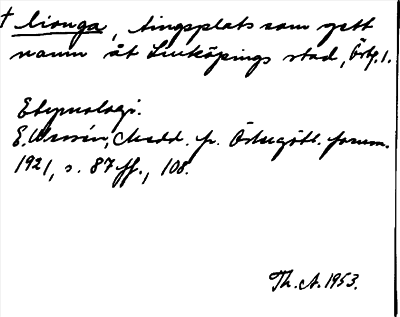 † lionga, tingsplats som gett
namn åt Linköpings stad, Östg. 1.
Etymologi.
E. Wessén, Medd. fr. Östergötl. fornm.
1921, s. 87 ff., 108.
Th. A. 1953.